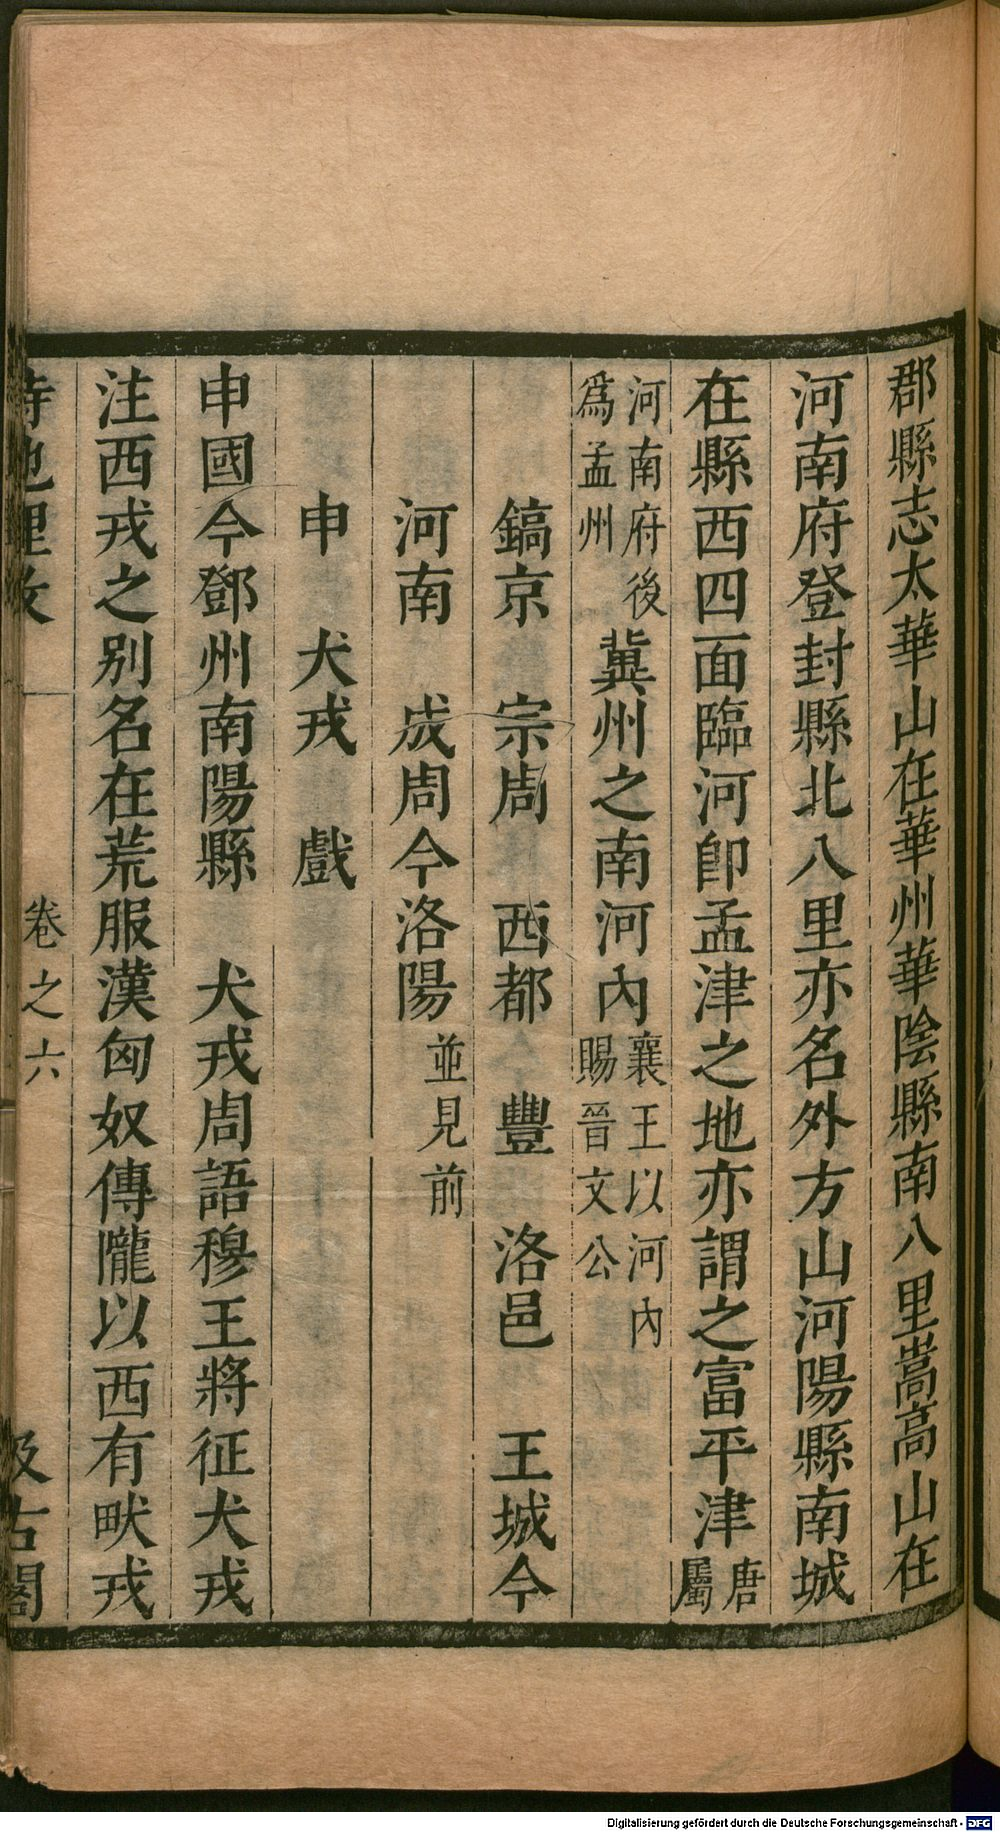 郡縣志太華山在華州華陰縣南八里嵩高山在
河南府登封縣北八里亦名外方山河陽縣南城
在縣西四面臨河卽孟津之地亦謂之富平津唐屬
河南府後爲孟州冀州之南河內襄王以河內賜晉文公
鎬京　宗周　西都　豐　洛邑　王城今
河南　成周今洛陽並見前
申　犬戎　戲
申國今鄧州南陽縣　犬戎周語穆王將征犬戎
注西戎之别名在荒服漢匈奴傳隴以西有畎戎
詩地理攷　卷之六　汲古閣
Digitalisierung gefördert durch die Deutsche Forschungsgemeinschaft - DFG